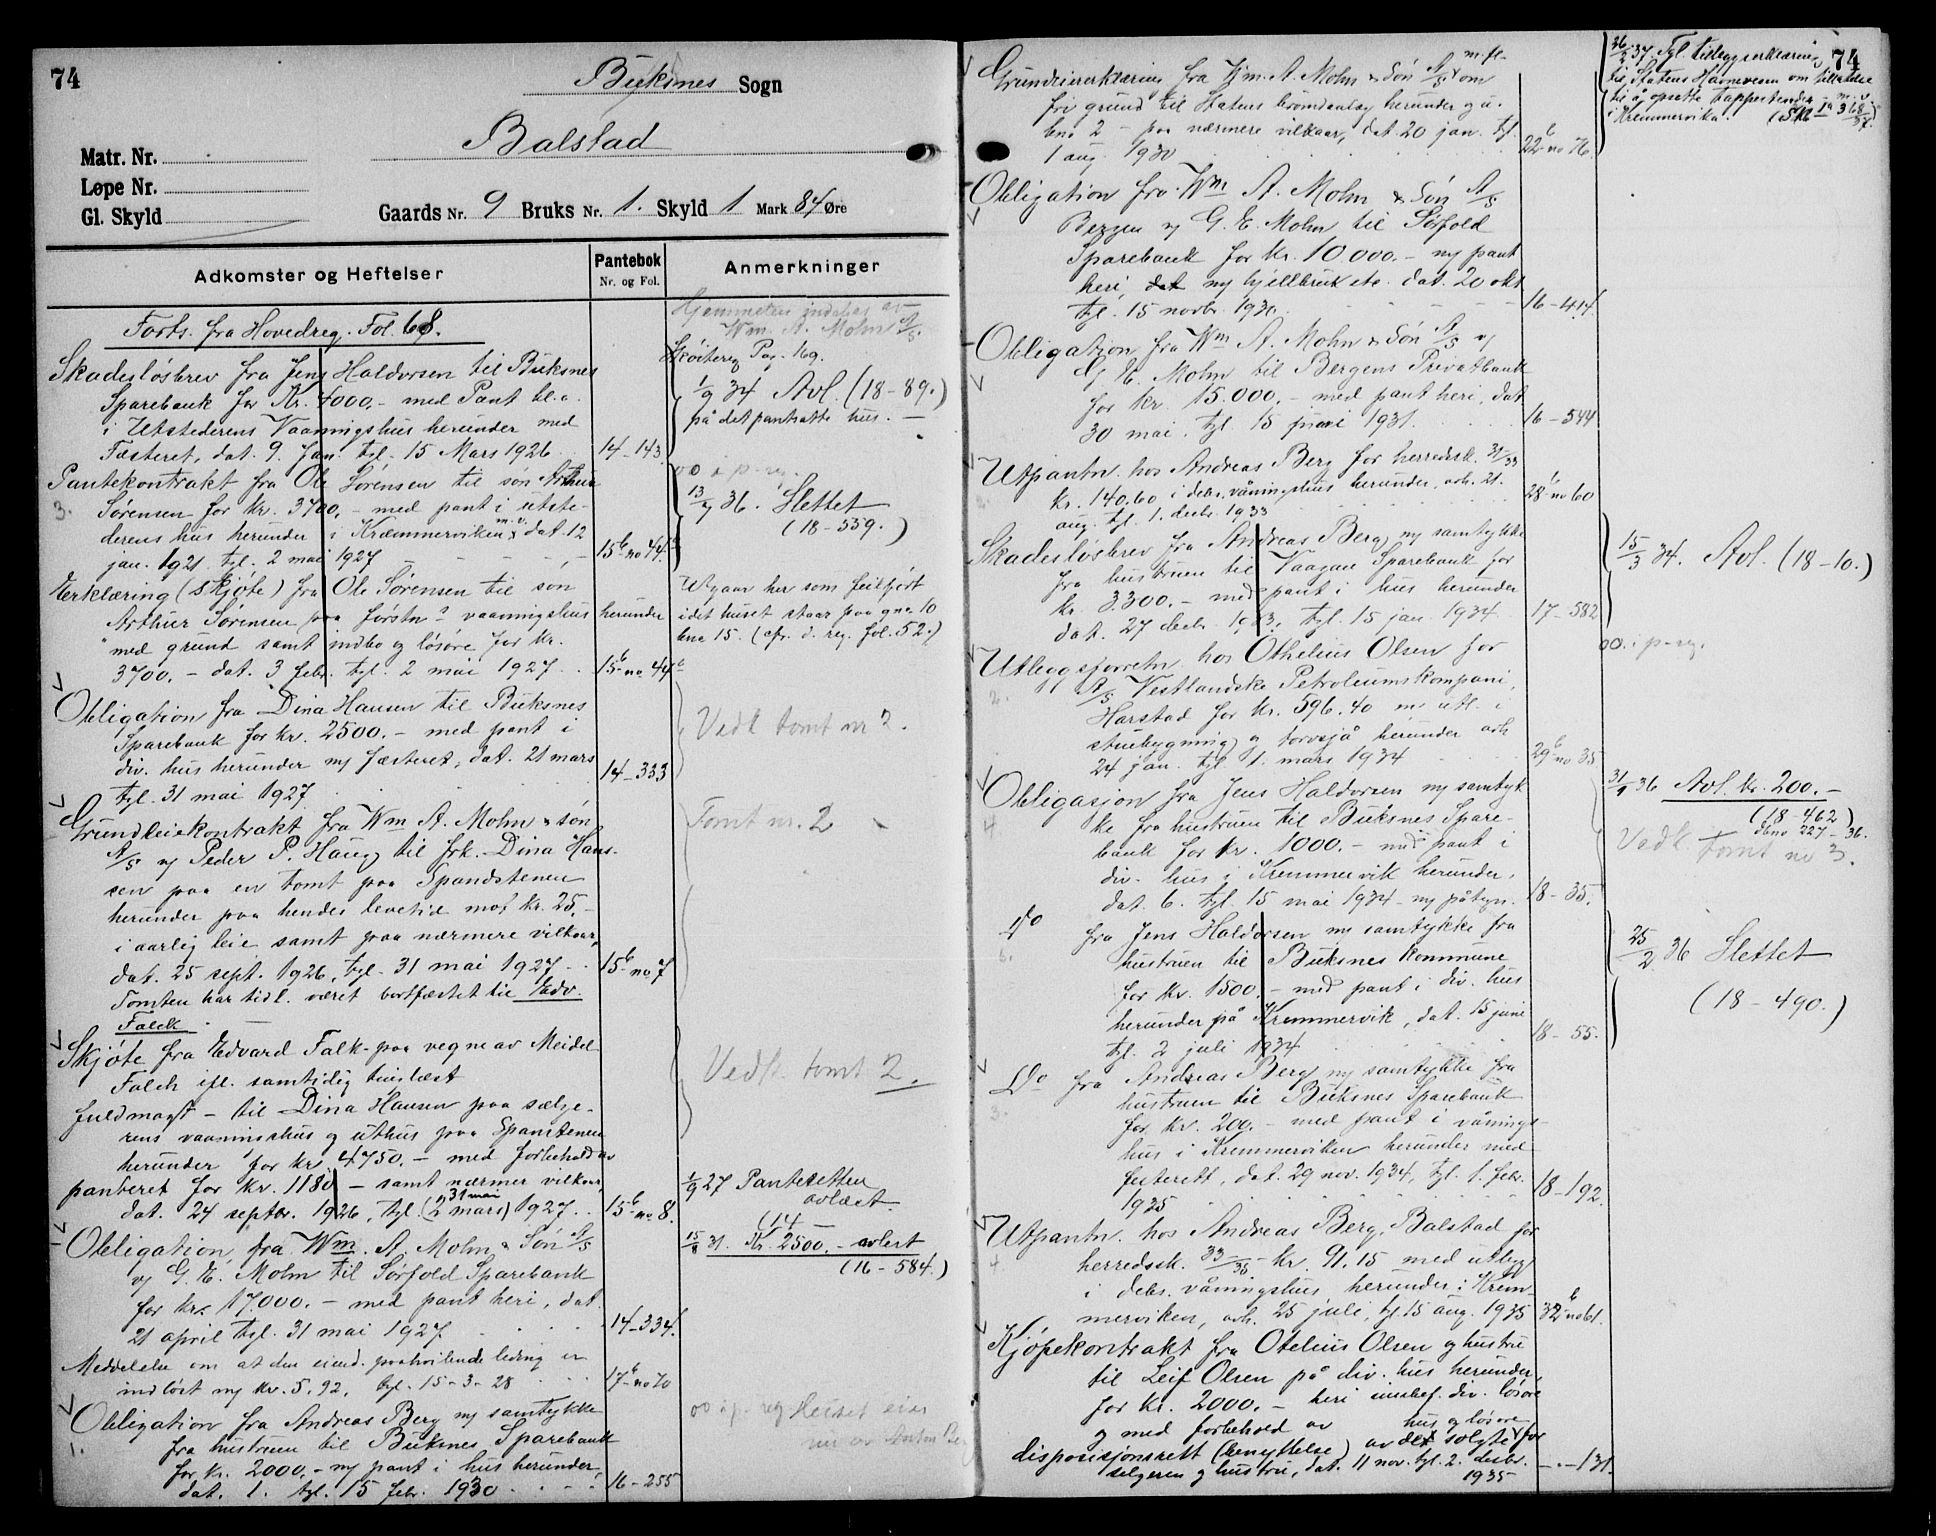 74
Buksnes Sogn
Balstad
Matr. Nr.
Løpe Nr.
Gl. Skyld
Gaards Nr. 9 Bruks Nr. 1. Skyld 1 Mark 84 Øre
Adkomster og Heftelser
Pantebok
Nr. og Fol.
Anmerkninger
Forts. fra Hovedreg. Fol. 68.
Skadesløsbrev fra Jens Haldorsen til Buksnes
Sparebank for Kr. 4000.- med Pant bl.a.
i Utstederens Vaaningshus herunder med
Fæsteret, dat. 9. Jan. tgl. 15 Mars 1926
14-143
Pantekontrakt fra Ole Sørensen til søn Arthur
3. Sørensen for kr. 3700.- med pant i utste-
derens hus herunder i Kræmmerviken m.v. dat. 12
jan. 1921 tgl. 2 mai 1927
15b no 44a
Erklæring (skjøte) fra Ole Sørensen til søn
Arthur Sørensen paa førstn? vaaningshus herunder
med grund samt indbo og løsøre for kr.
3700.- dat. 3 febr. tgl. 2 mai 1927
15b no 44b
Obligation fra Dina Hansen til Buksnes
Sparebank for kr. 2500.- med pant i
div. hus herunder m/ fæsteret, dat. 21 mars
tgl. 31 mai 1927
14-333
Grundleiekontrakt fra Wm A. Mohn & søn
A/S v/ Peder P. Haug til frk. Dina Han-
sen paa en tomt paa Spandstenen
herunder paa hendes levetid mot kr. 25.-
i aarlig leie samt paa nærmere vilkaar,
dat. 25 sept. 1926, tgl. 31 mai 1927
15b no 7
Tomten har tidl. været bortfæstet til Edv.
Falck
Skjøte fra Edvard Falk paa vegne av Meidel
Falch ifl. samtidig tinglæst
fuldmagt - til Dina Hansen paa sælge-
rens vaaningshus og uthus paa Spanstenen
herunder for kr. 4750.- med forbehold av
panteret for kr. 1180 - samt nærmer vilkaar,
dat. 24 septbr. 1926, tgl. (2 mars) 31 mai 1927
15b no 8.
Obligation fra Wm. A. Mohn & Søn A/S
v/ G. E. Mohn til Sørfold Sparebank
for kr. 17.000.- med pant heri, dat.
21 april tgl. 31 mai 1927
14-334.
Meddelelse om at den eiend. paahvilende leding er
indløst m/ kr. 5.92. tgl. 15-3-28
17b no 70
Obligation fra Andreas Berg m/ samtykke
1. fra hustruen til Buksnes Sparebank
for kr. 2000.- m/ pant i hus herunder,
dat. 1. tgl. 15 febr. 1930
16-255
Hjemmelen indehas av
Wm. A. Mohn A/S.
Skøitereg Pag. 169.
1/9 34 Avl. (18-89.)
på det pantsatte hus.
oo i p-reg.
13/7 36. Slettet
(18-559.)
Utgaar her som feilført
idet huset staar paa gno 10
bno 15. (cfr. d. reg. fol. 52.)
Vedk tomt nr 2.
Tomt nr. 2
Vedk tomt 2.
1/9 27 Panteretten
avlæst
(14
15/8 31. Kr. 2500.- avlest
(16-584.)
oo i p. reg. Huset eies
nu av Anton Berg
74
Grundeiererklæring fra Wm. A. Mohn & Søn A/S m.fl. om
fri grund til Statens brøndanlæg herunder og u.
bno 2 - paa nærmere vilkaar, dat. 20 jan. tgl.
1 aug. 1930
22b no 76.
Obligation fra Wm A. Mohn & Søn A/S
Bergen v/ G. E. Mohn til Sørfold
Sparebank for kr. 10000.- m/ pant
heri, dat m/ hjellbruk etc. dat. 20 okt
tgl. 15 novbr. 1930
16-414
Obligation fra Wm A. Mohn & Søn A/S v/
G. E. Mohn til Bergens Privatbank
for kr. 15.000.- med pant heri, dat
30 mai. tgl. 15 juni 1931.
16-544
Utpantn. hos Andreas Berg for herredssk. 31/33
2. kr. 140.60 i debs. våningshus herunder, avh. 21.
aug. tgl. 1. decbr. 1933
28b no 60
Skadesløsbrev fra Andreas Berg m/ samtykke
fra hustruen til Vaagan Sparebank for
kr. 3300.- med pant i hus herunder
dat. 27 decbr. 1933, tgl. 15 jan. 1934
17-582
Utleggsforretn. hos Othelius Olsen for
2. A/S Vestlandske Petroleumskompani,
Harstad for kr. 596.40 m. utl. i
stuebygning og torvsjå herunder avh
24 jan. tgl 1. mars 1934
29b no 35
Obligasjon fra Jens Haldorsen m/ samtyk
4. ke fra hustruen til Buksnes Spare-
bank for kr. 1000.- med pant i
div. hus i Kremmervik herunder,
dat. 6. tgl. 15 mai 1934 - m/ påtegn.
18-35.
Do fra Jens Haldorsen m/ samtykke fra
6. hustruen til Buksnes Kommune
for kr. 1500.- med pant i div. hus
herunder på Kremmervik, dat. 15 juni
tgl. 2 juli 1934
18-55.
Do fra Andreas Berg m/ samtykke fra
3. hustruen til Buksnes Sparebank
for kr. 200.- med pant i vånings-
hus i Kremmerviken herunder med
festerett, dat. 29 nov. 1934, tgl. 1. febr.
1935
18-192.
Utpantn. hos Andreas Berg, Balstad for
4. herredssk. 33/35 - kr. 91.15 med utlegg
i debs. våningshus herunder i Krem-
merviken, avh. 25 juli, tgl. 15 aug. 1935
32b no 61.
Kjøpekontrakt fra Otelius Olsen og hustru
til Leif Olsen på div. hus herunder,
for kr. 2000.- heri innbef. div. løsøre
og med forbehold av hus og løsøre
disposisjonsrett (benyttelse) av det solgte for
selgeren og hustru, dat. 11 nov. tgl. 2. desbr.
1935
- - 131.
26/2 37 Tgl. tilleggserklæring
til Statens Havnevesen om tillatelse
til å opsette tappestender m.v.
i Kremmervika. (Skl 1a 368/37.)
15/3 34. Avl. (18-10.)
oo. i p-reg.
31/1 36 Avl. kr. 200.-
(18-462)
dbno 227-36.
Vedk. tomt nr 3.
25/2 36 Slettet
(18-490.)